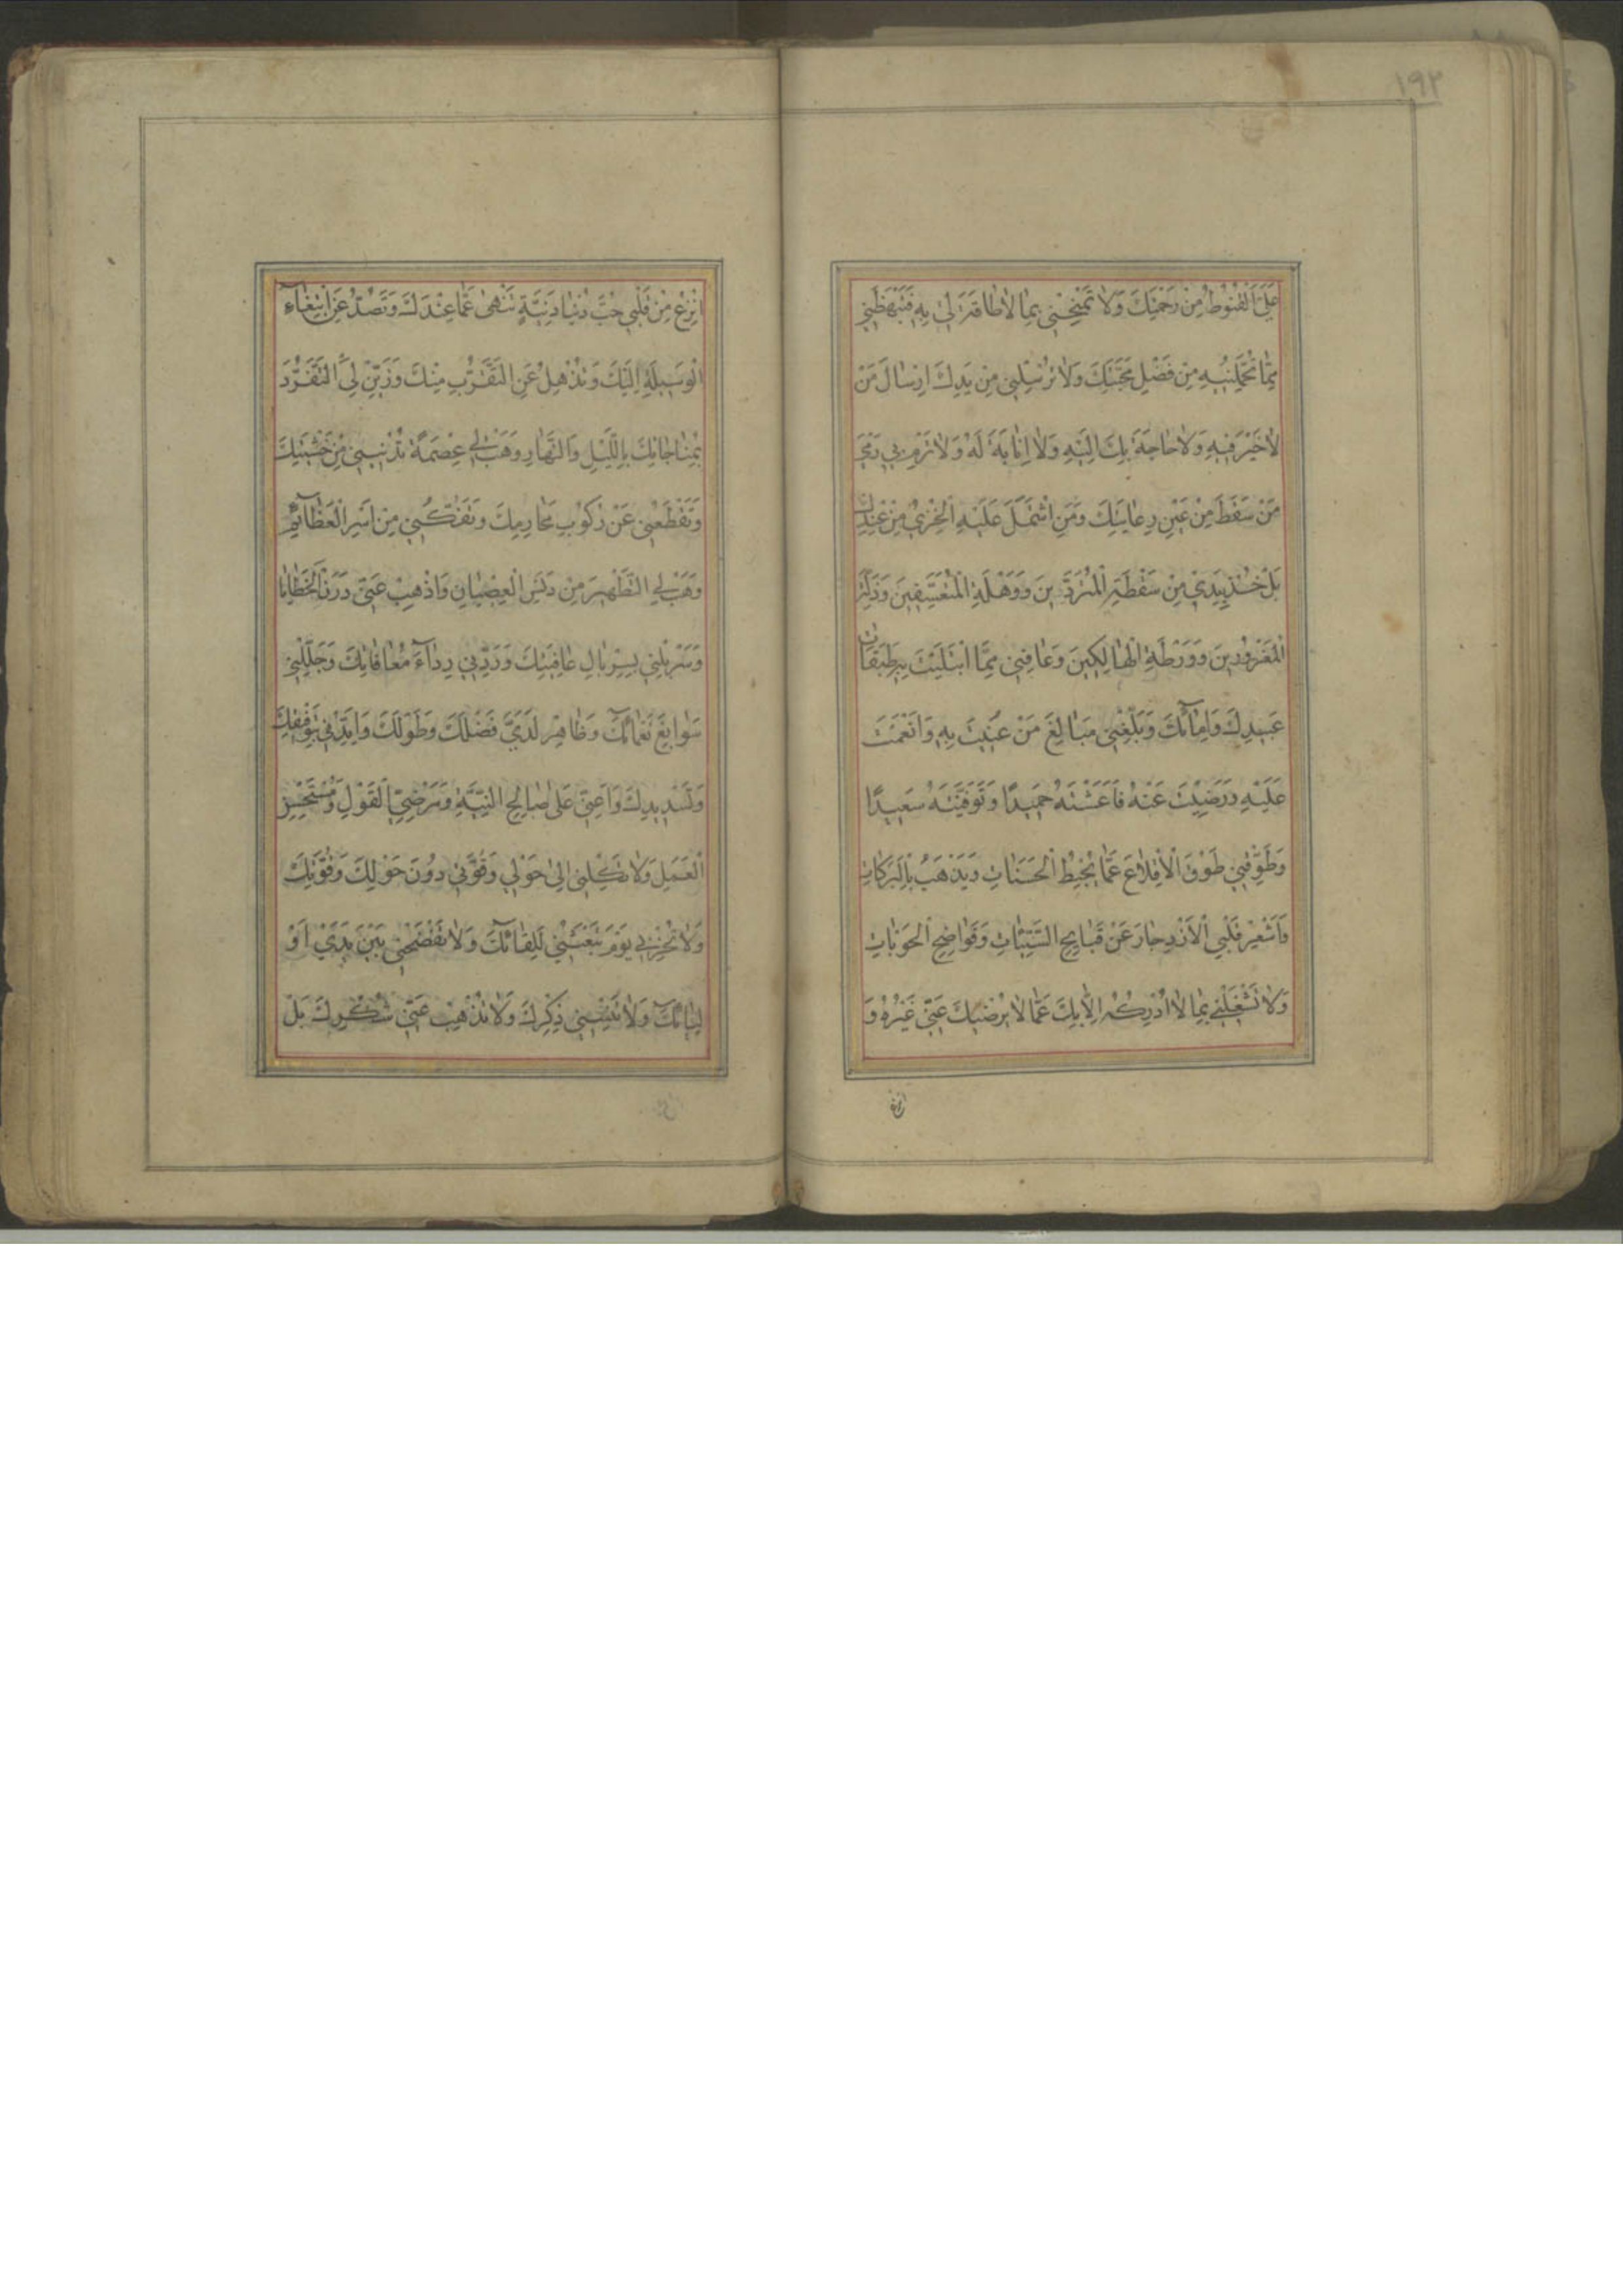 ١٩٢
عَلَيَّ الْقُنُوطُ مِنْ رَحْمَتِكَ وَلَا تَمْنَحْنِي بِمَا لَا طَاقَةَ لِي بِهِ فَتَبْهَظَنِي
مِمَّا تُحَمِّلُنِيهِ مِنْ فَضْلِ مَحَبَّتِكَ وَلَا تُرْسِلْنِي مِنْ يَدِكَ اِرْسَالَ مَنْ
لَا خَيْرَ فِيهِ وَلَا حَاجَةَ بِكَ اِلَيْهِ وَلَا اِنَابَةَ لَهُ وَلَا تَرْمِ بِي رَمْيَ
مَنْ سَقَطَ مِنْ عَيْنِ رِعَايَتِكَ وَمَنِ اشْتَمَلَ عَلَيْهِ الْخِزْيُ مِنْ عِنْدِكَ
بَلْ خُذْ بِيَدِي مِنْ سَقْطَةِ الْمُتَرَدِّينَ وَوَهْلَةِ الْمُتَعَسِّفِينَ وَزَلَّةِ
الْمَغْرُورِينَ وَوَرْطَةِ الْهَالِكِينَ وَعَافِنِي مِمَّا ابْتَلَيْتَ بِهِ طَبَقَاتِ
عَبِيدِكَ وَاِمَائِكَ وَبَلِّغْنِي مَبَالِغَ مَنْ عُنِيتَ بِهِ وَاَنْعَمْتَ
عَلَيْهِ وَرَضِيتَ عَنْهُ فَاَعَشْتَهُ حَمِيدًا وَتَوَفَّيْتَهُ سَعِيدًا
وَطَوِّقْنِي طَوْقَ الْاِقْلَاعِ عَمَّا يُحْبِطُ الْحَسَنَاتِ وَيَذْهَبُ بِالْبَرَكَاتِ
وَاَشْعِرْ قَلْبِيَ الْاِزْدِجَارَ عَنْ قَبَايِحِ السَّيِّئَاتِ وَفَوَاضِحِ الْحَوْبَاتِ
وَلَا تَشْغَلْنِي بِمَا لَا اُدْرِكُهُ اِلَّا بِكَ عَمَّا لَا يُرْضِيكَ عَنِّي غَيْرُهُ وَ
انزع
اِنْزِعْ مِنْ قَلْبِي حُبَّ دُنْيَا دَنِيَّةٍ تَنْهٰى عَمَّا عِنْدَكَ وَتَصُدُّ عَنِ ابْتِغَاءِ
الْوَسِيلَةِ اِلَيْكَ وَتُذْهِلُ عَنِ التَّقَرُّبِ مِنْكَ وَزَيِّنْ لِيَ التَّفَرُّدَ
بِمُنَاجَاتِكَ بِاللَّيْلِ وَالنَّهَارِ وَهَبْ لِي عِصْمَةً تُدْنِينِي مِنْ خَشْيَتِكَ
وَتَقْطَعُنِي عَنْ رُكُوبِ مَحَارِمِكَ وَتَفُكُّنِي مِنْ اَسْرِ الْعَظَائِمِ
وَهَبْ لِي التَّطْهِيرَ مِنْ دَنَسِ الْعِصْيَانِ وَاَذْهِبْ عَنِّي دَرَنَ الْخَطَايَا
وَسَرْبِلْنِي بِسِرْبَالِ عَافِيَتِكَ وَرَدِّنِي رِدَاءَ مُعَافَاتِكَ وَجَلِّلْنِي
سَوَابِغَ نَعْمَائِكَ وَظَاهِرْ لَدَيَّ فَضْلَكَ وَطَوْلَكَ وَاَيِّدْنِي بِتَوْفِيقِكَ
وَتَسْدِيدِكَ وَاَعِنِّي عَلٰى صَالِحِ النِّيَّةِ وَمَرْضِيِّ الْقَوْلِ وَمُسْتَحْسَنِ
الْعَمَلِ وَلَا تَكِلْنِي اِلٰى حَوْلِي وَقُوَّتِي دُونَ حَوْلِكَ وَقُوَّتِكَ
وَلَا تُخْزِنِي يَوْمَ تَبْعَثُنِي لِلِقَائِكَ وَلَا تَفْضَحْنِي بَيْنَ يَدَيْ اَوْ
لِيَائِكَ وَلَا تُنْسِنِي ذِكْرَكَ وَلَا تُذْهِبْ عَنِّي شُكْرَكَ بَلْ